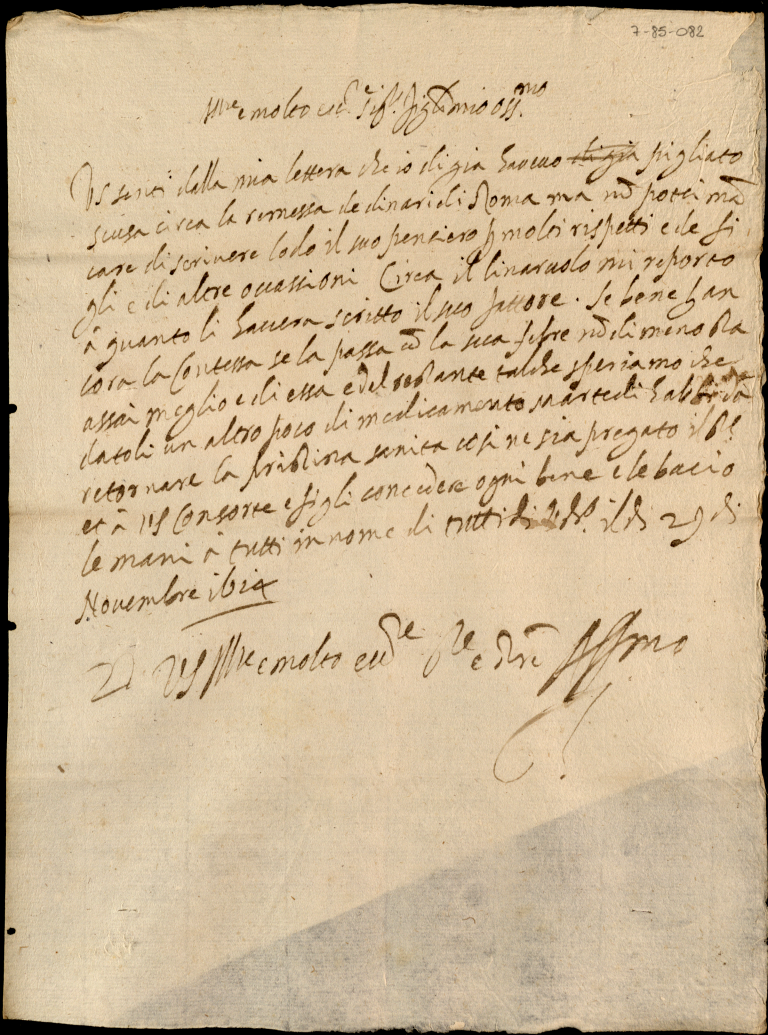 7-85-082
Ill.re e molto ecc.te Sig.r figl mio oss.mo
VS senti dalla mia lettera che io di gia havevo di gia pigliato
scusa circa la remessa de dinari di Roma ma nō potei mā
care di scrivere lodo il suo pensiero p molti rispetti e de fi
gli e di altre occassioni Circa il linaruolo mi reporto
à quanto li haverà scritto il suo fattore. Se bene han
cora la Contessa se la passa cō la sua febre nōdimeno sta
assai meglio e di essa e del restante talche speriamo che
datoli un altro poco di medicamento martedi habbi da
retornare la pristina sanita cosi ne sia pregato il
et à VS Consorte e figli concedere ogni bene e le bacio
le mani à tutti in nome di tutti di il di 29 di
Novembre 1614
Di VS Ill.re e molto ecc.te